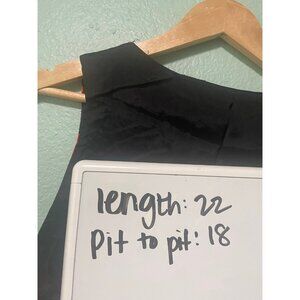 length: 22
Pit to pit: 18